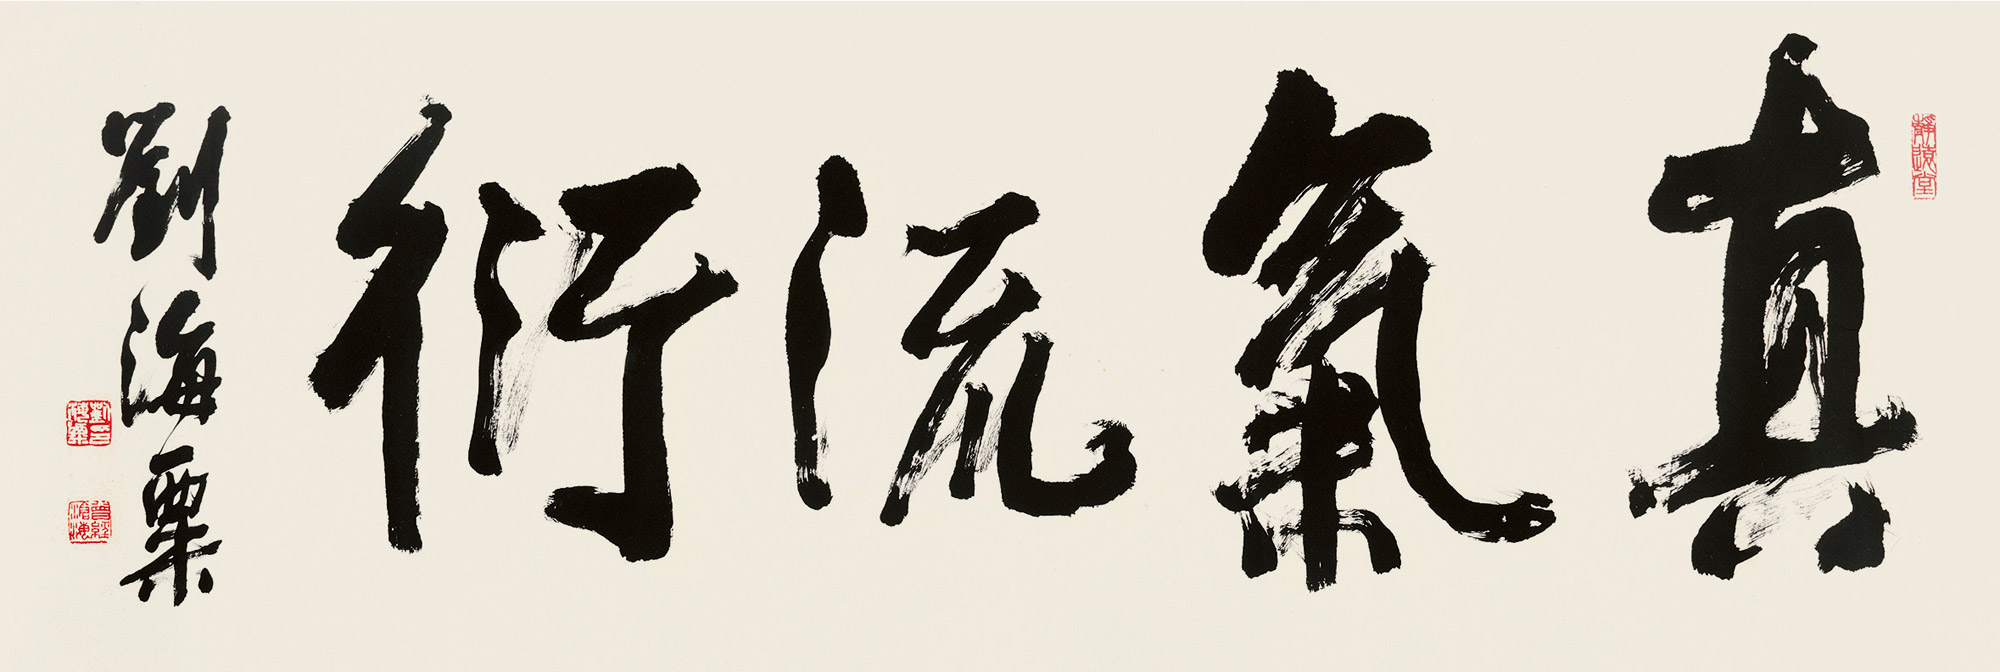 真氣流衍
劉海粟
劉印海粟
曾經滄海